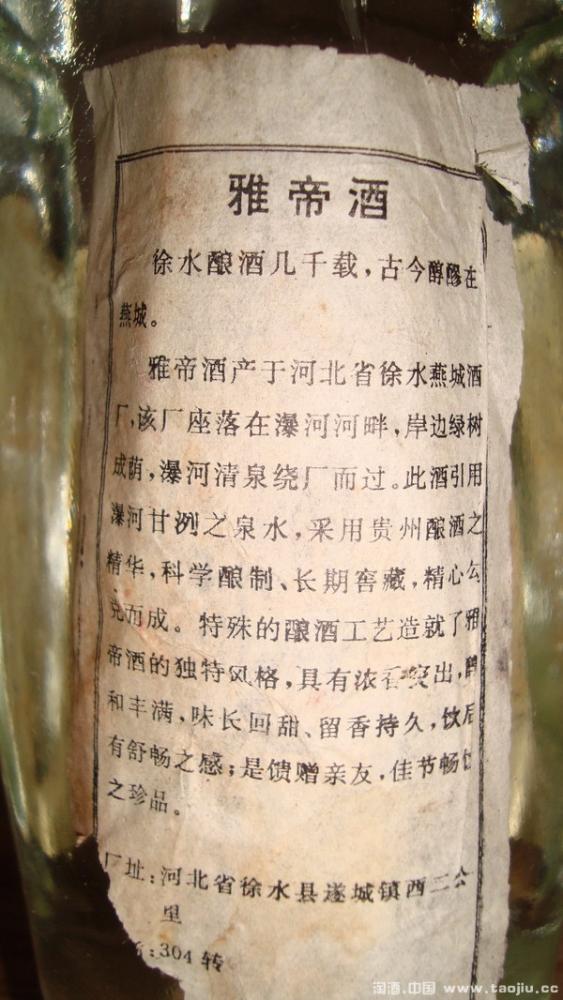 雅帝酒
徐水酿酒几千载，古今醇醪在
燕城。
雅帝酒产于河北省徐水燕城酒
厂，该厂座落在瀑河河畔，岸边绿树
成荫，瀑河清泉绕厂而过。此酒引用
瀑河甘洌之泉水，采用贵州酿酒之
精华，科学酿制、长期窖藏，精心勾
兑而成。特殊的酿酒工艺造就了雅
帝酒的独特风格，具有浓香突出，醇
和丰满，味长回甜、留香持久，饮后
有舒畅之感；是馈赠亲友，佳节畅饮
之珍品。
厂址：河北省徐水县遂城镇西二公
里
：304转
淘酒.中国 www.taojiu.cc